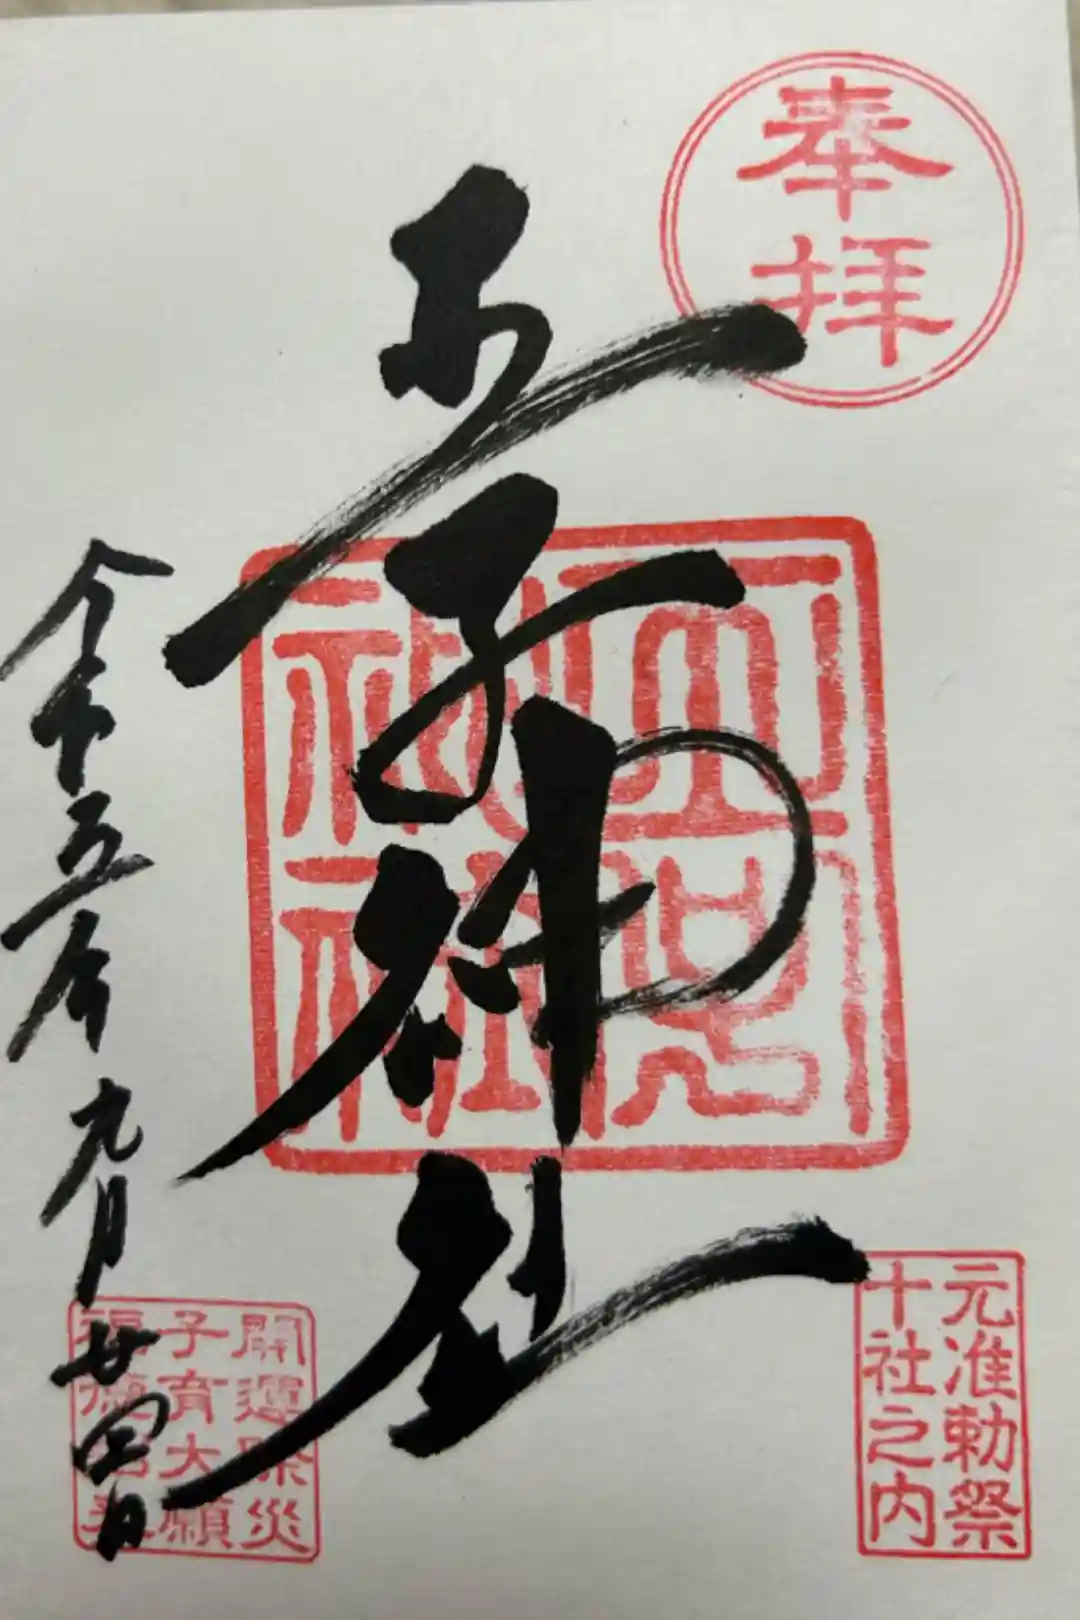 奉拝
王子神社
元准勅祭
十社之内
令和五年九月廿四日
開運除災
子育大願
福徳招来